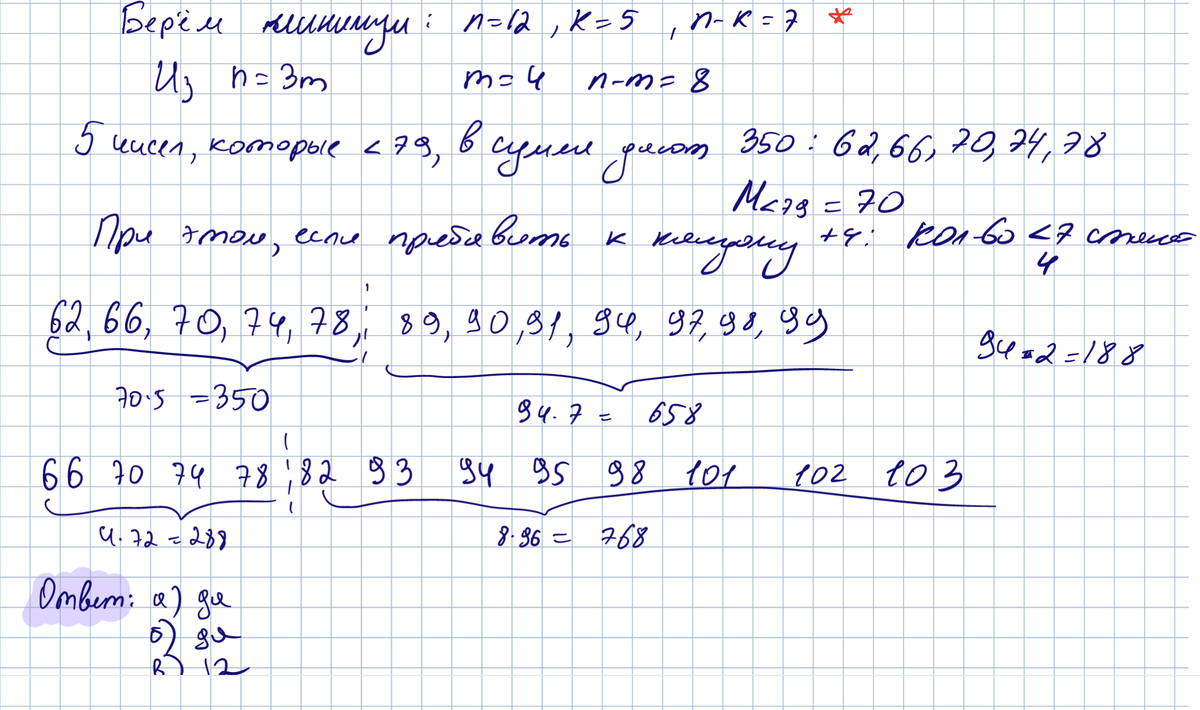 Берём минимум: n=12, k=5, n-k=7 *
Из n=3m m=4 n-m=8
5 чисел, которые <79, в сумме дают 350: 62, 66, 70, 74, 78
M<79 = 70
При этом, если прибавить к каждому +4: кол-во <7 станет
4
62, 66, 70, 74, 78, 89, 90, 91, 94, 97, 98, 99
94·2=188
70·5 =350
94·7= 658
66 70 74 78 82 93 94 95 98 101 102 103
4·72=288
8·96= 768
Ответ: а) да
б) да
в) 12